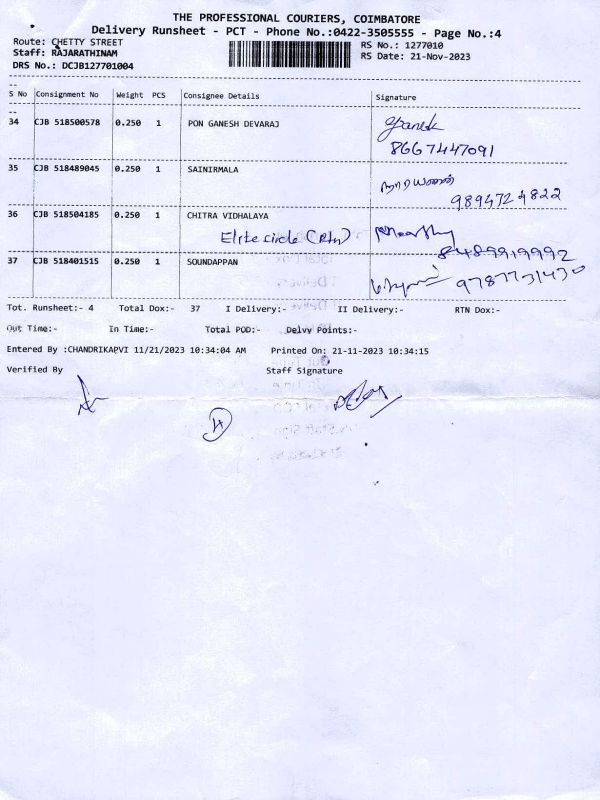 THE PROFESSIONAL COURIERS, COIMBATORE
Delivery Runsheet - PCT - Phone No.:0422-3505555 - Page No.:4
Route: CHETTY STREET RS No.: 1277010
Staff: RAJARATHINAM RS Date: 21-Nov-2023
DRS No.: DCJB127701004
S No Consignment No Weight PCS Consignee Details Signature
34 CJB 518500578 0.250 1 PON GANESH DEVARAJ
8667447091
35 CJB 518489045 0.250 1 SAINIRMALA
நாராயணன்
9894724822
36 CJB 518504185 0.250 1 CHITRA VIDHALAYA
Elite circle (Rtn)
8489919992
37 CJB 518401515 0.250 1 SOUNDAPPAN
9787731430
Tot. Runsheet:- 4 Total Dox:- 37 I Delivery:- II Delivery:- RTN Dox:-
Out Time:- In Time:- Total POD:- Delvy Points:-
Entered By :CHANDRIKAPVI 11/21/2023 10:34:04 AM Printed On: 21-11-2023 10:34:15
Verified By Staff Signature